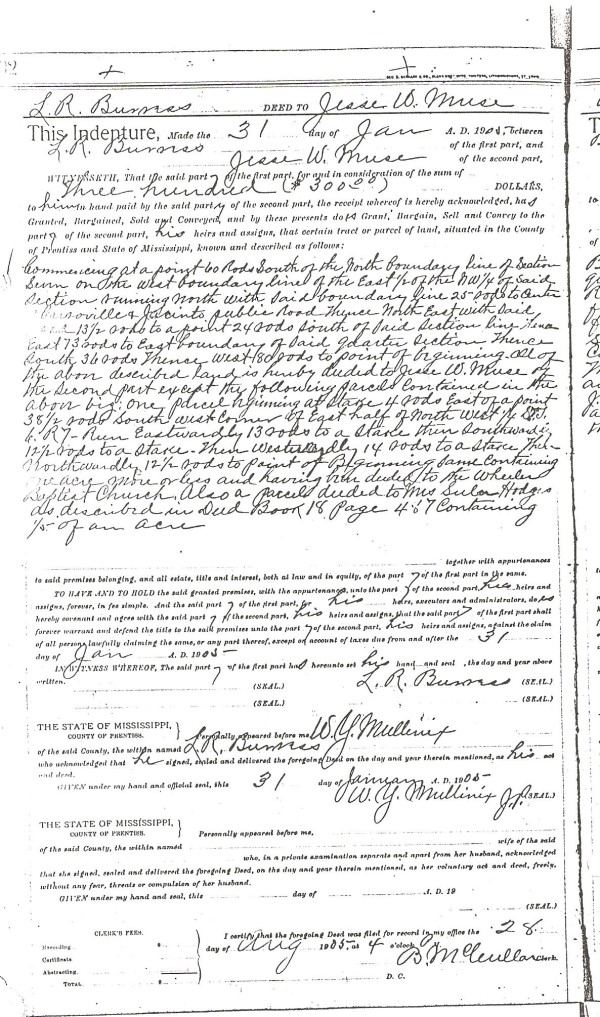 L. R. Burress DEED TO Jesse W. Muse
This Indenture, Made the 31 day of Jan A. D. 1905, between
L. R. Burress of the first part, and
Jesse W. Muse of the second part,
WITNESSETH, That the said party of the first part, for and in consideration of the sum of
Three hundred ($300.00) DOLLARS,
to him in hand paid by the said party of the second part, the receipt whereof is hereby acknowledged, has
Granted, Bargained, Sold and Conveyed, and by these presents do es Grant, Bargain, Sell and Convey to the
party of the second part, his heirs and assigns, that certain tract or parcel of land, situated in the County
of Prentiss and State of Mississippi, known and described as follows:
Commencing at a point 60 Rods South of the North boundary line of Section
Seven on the West boundary line of the East 1/2 of the NW 1/4 of said
Section running North with Said boundary line 25 rods to Center
& Jacinto public Road Thence North East with Said
13 1/2 rods to a point 24 rods South of Said Section line thence
East 73 rods to East boundary of Said quarter Section Thence
South 36 rods Thence West 80 rods to point of beginning. All of
the above described land is hereby deeded to Jesse W. Muse of
the Second part except the following parcels Contained in the
above viz: One parcel beginning at Stake 4 rods East of a point
38 1/2 rods South West Corner of East half of North West 1/4
6. R 7 - Run Eastwardly 13 rods to a Stake then Southwardly
12 1/2 rods to a Stake - Then Westwardly 14 rods to a Stake Then
Northwardly 12 1/2 rods to Point of Beginning Same Containing
one acre more or less and having been deeded to the Wheeler
Baptist Church. Also a parcel deeded to Mrs Hodges
as described in Deed Book 18 Page 467 Containing
1/5 of an acre
together with appurtenances
to said premises belonging, and all estate, title and interest, both at law and in equity, of the party of the first part in the same.
TO HAVE AND TO HOLD the said granted premises, with the appurtenances, unto the party of the second part, his heirs and
assigns, forever, in fee simple. And the said party of the first part, for his heirs, executors and administrators, do es
hereby covenant and agree with the said party of the second part, his heirs and assigns, that the said party of the first part shall
forever warrant and defend the title to the said premises unto the party of the second part, his heirs and assigns, against the claim
of all persons lawfully claiming the same, or any part thereof, except on account of taxes due from and after the 31
day of Jan A. D. 1905
IN WITNESS WHEREOF, The said party of the first part has hereunto set his hand and seal, the day and year above
written. L. R. Burress (SEAL.)
(SEAL.) (SEAL.)
(SEAL.) (SEAL.)
THE STATE OF MISSISSIPPI,
COUNTY OF PRENTISS. Personally appeared before me W. Y. Mullinix
of the said County, the within named L. R. Burress
who acknowledged that he signed, sealed and delivered the foregoing Deed on the day and year therein mentioned, as his act
and deed.
GIVEN under my hand and official seal, this 31 day of January A. D. 1905
W. Y. Mullinix J.P. (SEAL.)
THE STATE OF MISSISSIPPI,
COUNTY OF PRENTISS. Personally appeared before me,
of the said County, the within named wife of the said
who, in a private examination separate and apart from her husband, acknowledged
that she signed, sealed and delivered the foregoing Deed, on the day and year therein mentioned, as her voluntary act and deed, freely,
without any fear, threats or compulsion of her husband.
GIVEN under my hand and seal, this day of A. D. 19
(SEAL.)
CLERK'S FEES.
Recording $
Certificate
Abstracting
TOTAL $
I certify that the foregoing Deed was filed for record in my office the 28
day of Aug 1905, at 4 o'clock
B. McCullar Clerk.
D. C.